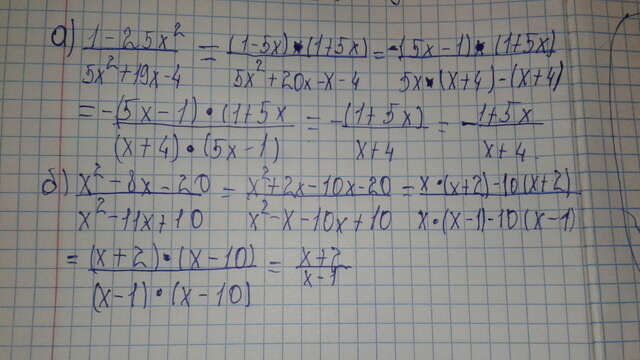 а) 1-25x² / 5x²+19x-4 = (1-5x)·(1+5x) / 5x²+20x-x-4 = -(5x-1)·(1+5x) / 5x·(x+4)-(x+4)
= -(5x-1)·(1+5x) / (x+4)·(5x-1) = -(1+5x) / x+4 = -1+5x / x+4
б) x²-8x-20 / x²-11x+10 = x²+2x-10x-20 / x²-x-10x+10 = x·(x+2)-10(x+2) / x·(x-1)-10(x-1)
= (x+2)·(x-10) / (x-1)·(x-10) = x+2 / x-1